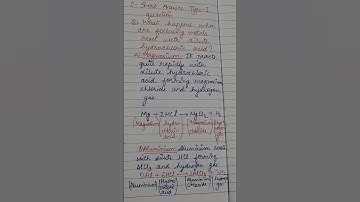 C- Short Answer Type-I
question
Q) What happens when
the following metals
react with dilute
hydrochloric acid?
a) Magnesium: It reacts
quite rapidly with
dilute hydrochloric
acid forming magnesium
chloride and hydrogen
gas.
Mg + 2HCl → MgCl2 + H2
Magnesium hydro- Magnesium Hydrogen
chloric chloride gas
acid
Aluminium: Aluminium reacts
with dilute HCl forming
AlCl3 and hydrogen gas
2Al + 6HCl → 2AlCl3 + 3H2
Aluminium Hydro Aluminium Hydrogen
chloric chloride gas
acid